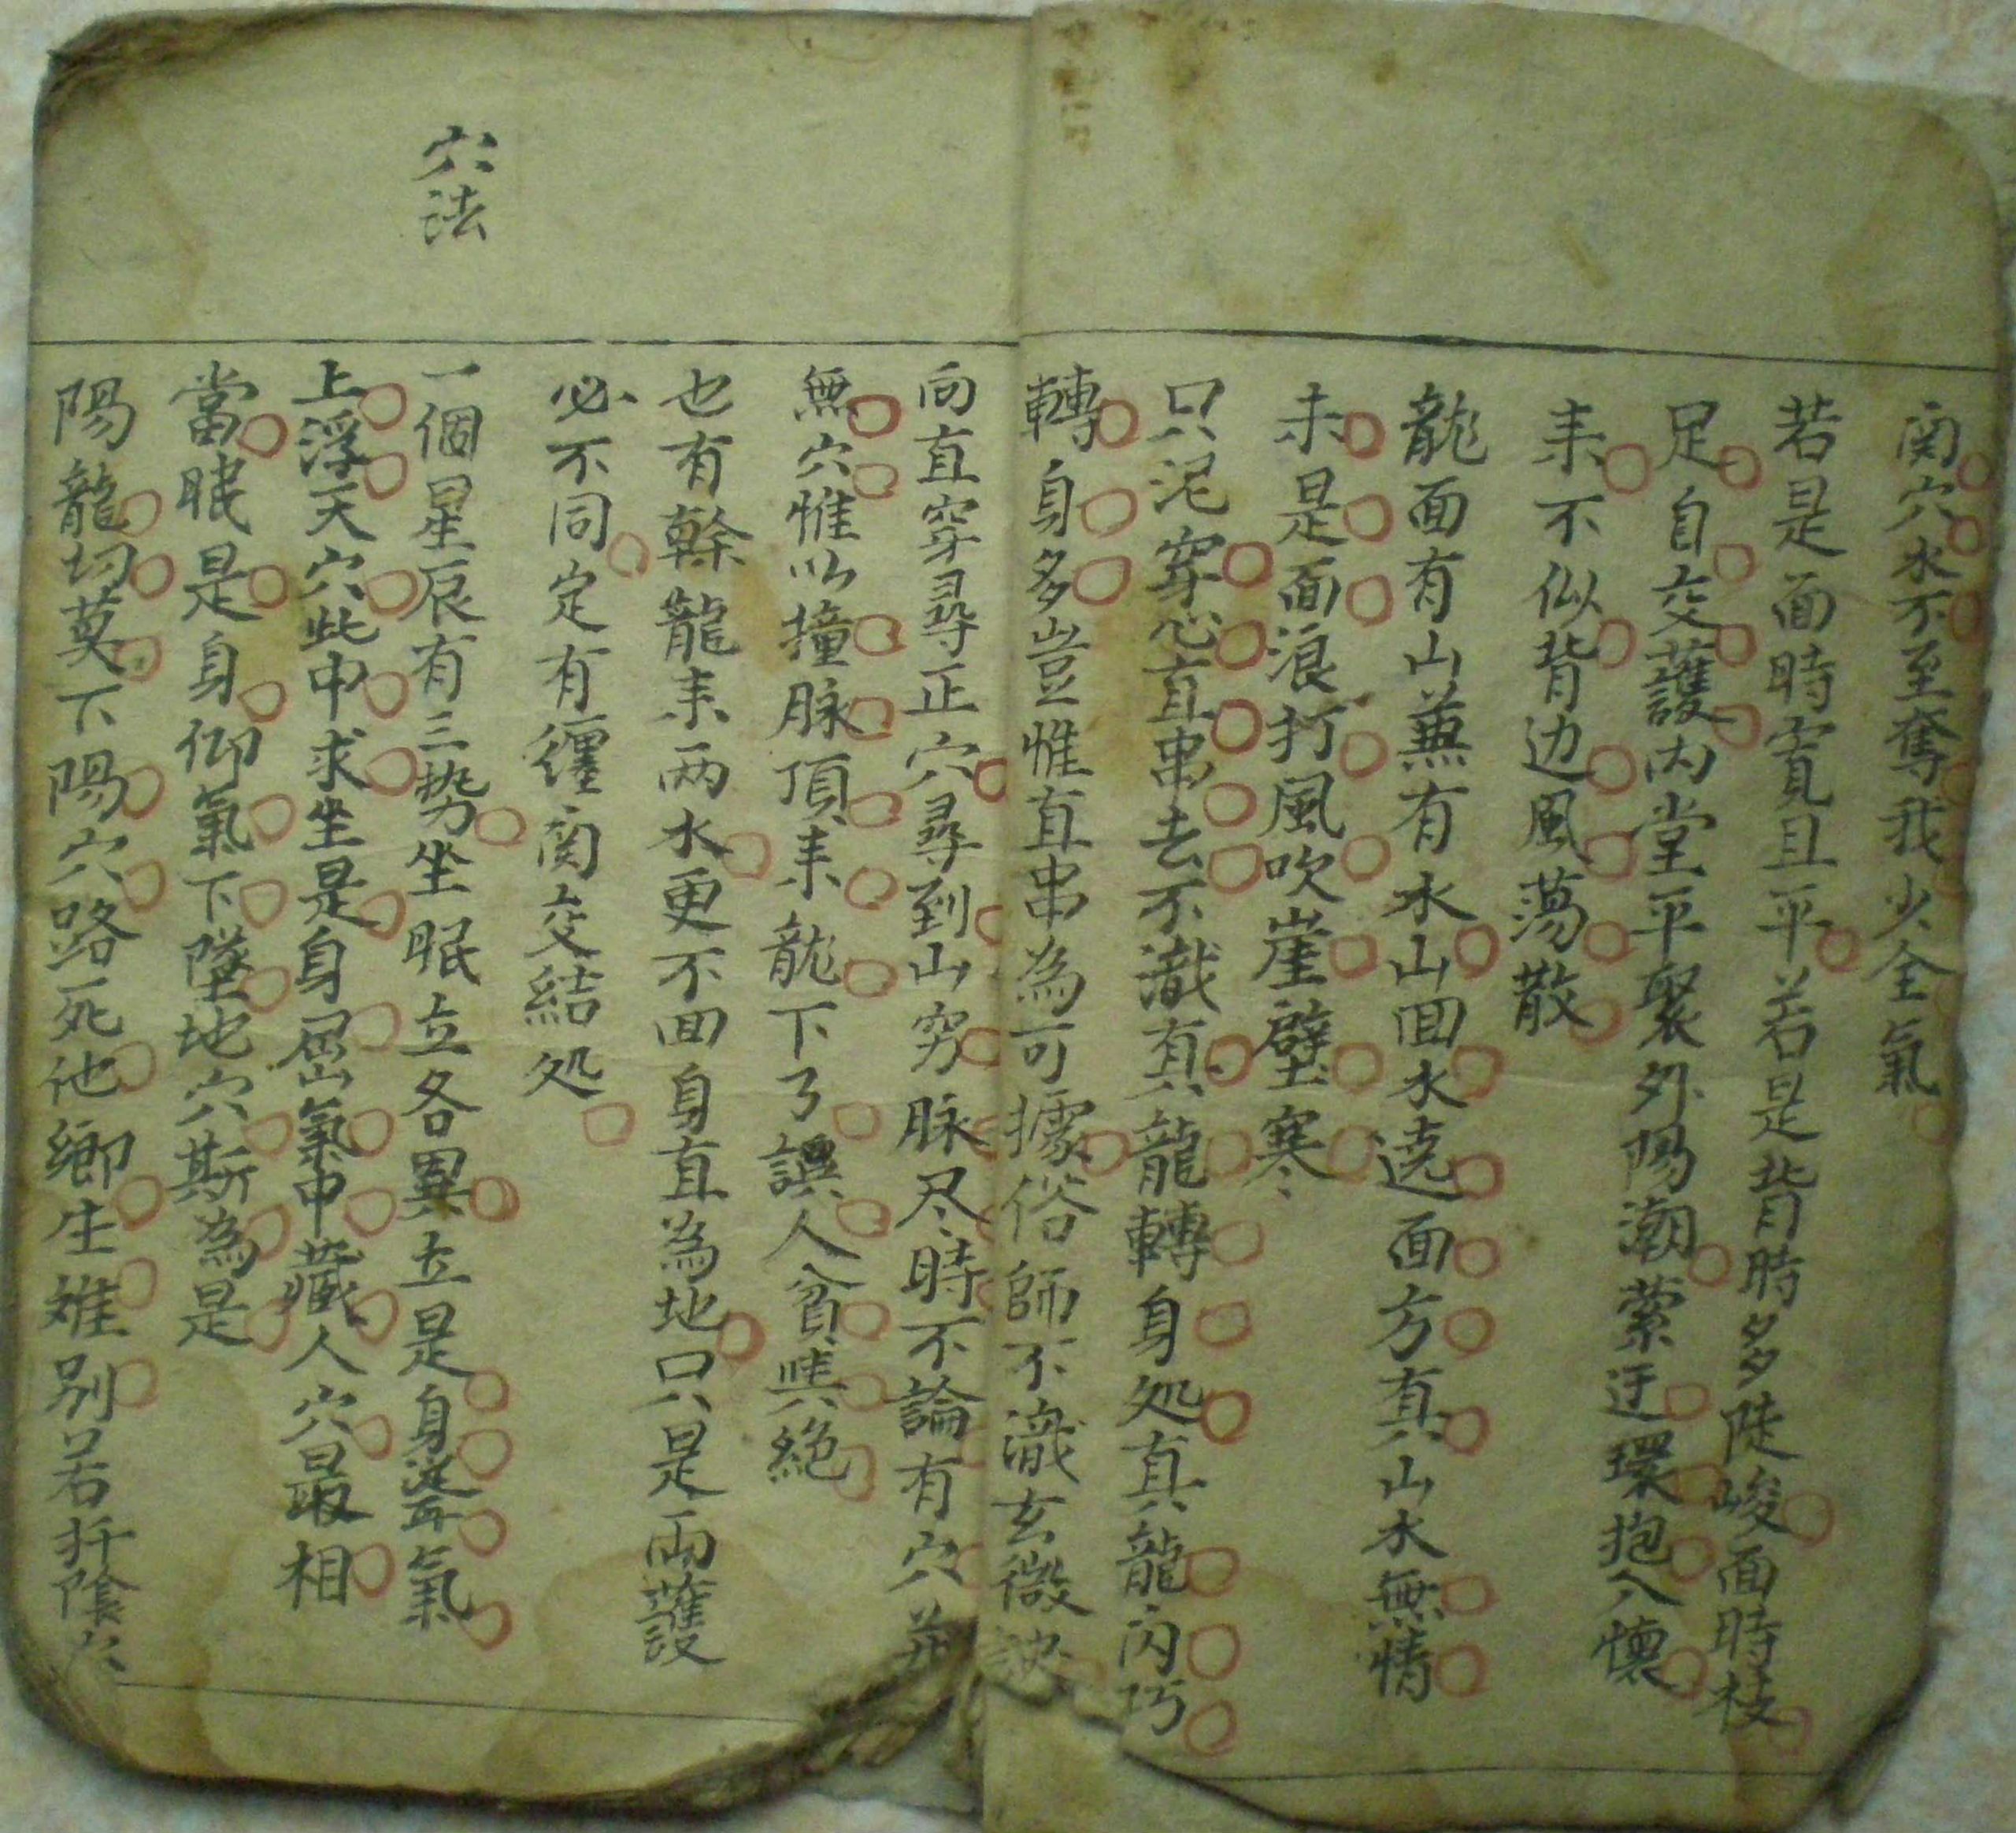 穴水不至奪我少全氣
若是面時寬且平若是背時多陡峻面時枝
足自交護內堂平聚外陽潮縈迂環抱入懷
耒不似背边風蕩散
龍面有山兼有水山回水遶面方真山水無情
未是面浪打風吹崖壁寒
只泥穿心直串去不識真龍轉身処真龍內巧
轉身多豈惟直串為可據俗師不識玄微訣
向直穿尋正穴尋到山穷脉尽時不論有穴并
無穴惟以撞脉頂耒龍下了誤人貧與絕
也有幹龍耒两水更不回身直為地只是兩護
必不同定有纏関交結処
穴法
一個星辰有三势坐眠立各異立是身聳氣
上浮天穴此中求坐是身屈氣中藏人穴最相
當眠是身仰氣下墜地穴斯為是
陽龍切莫下陽穴路死他鄉生難別若扦陰穴